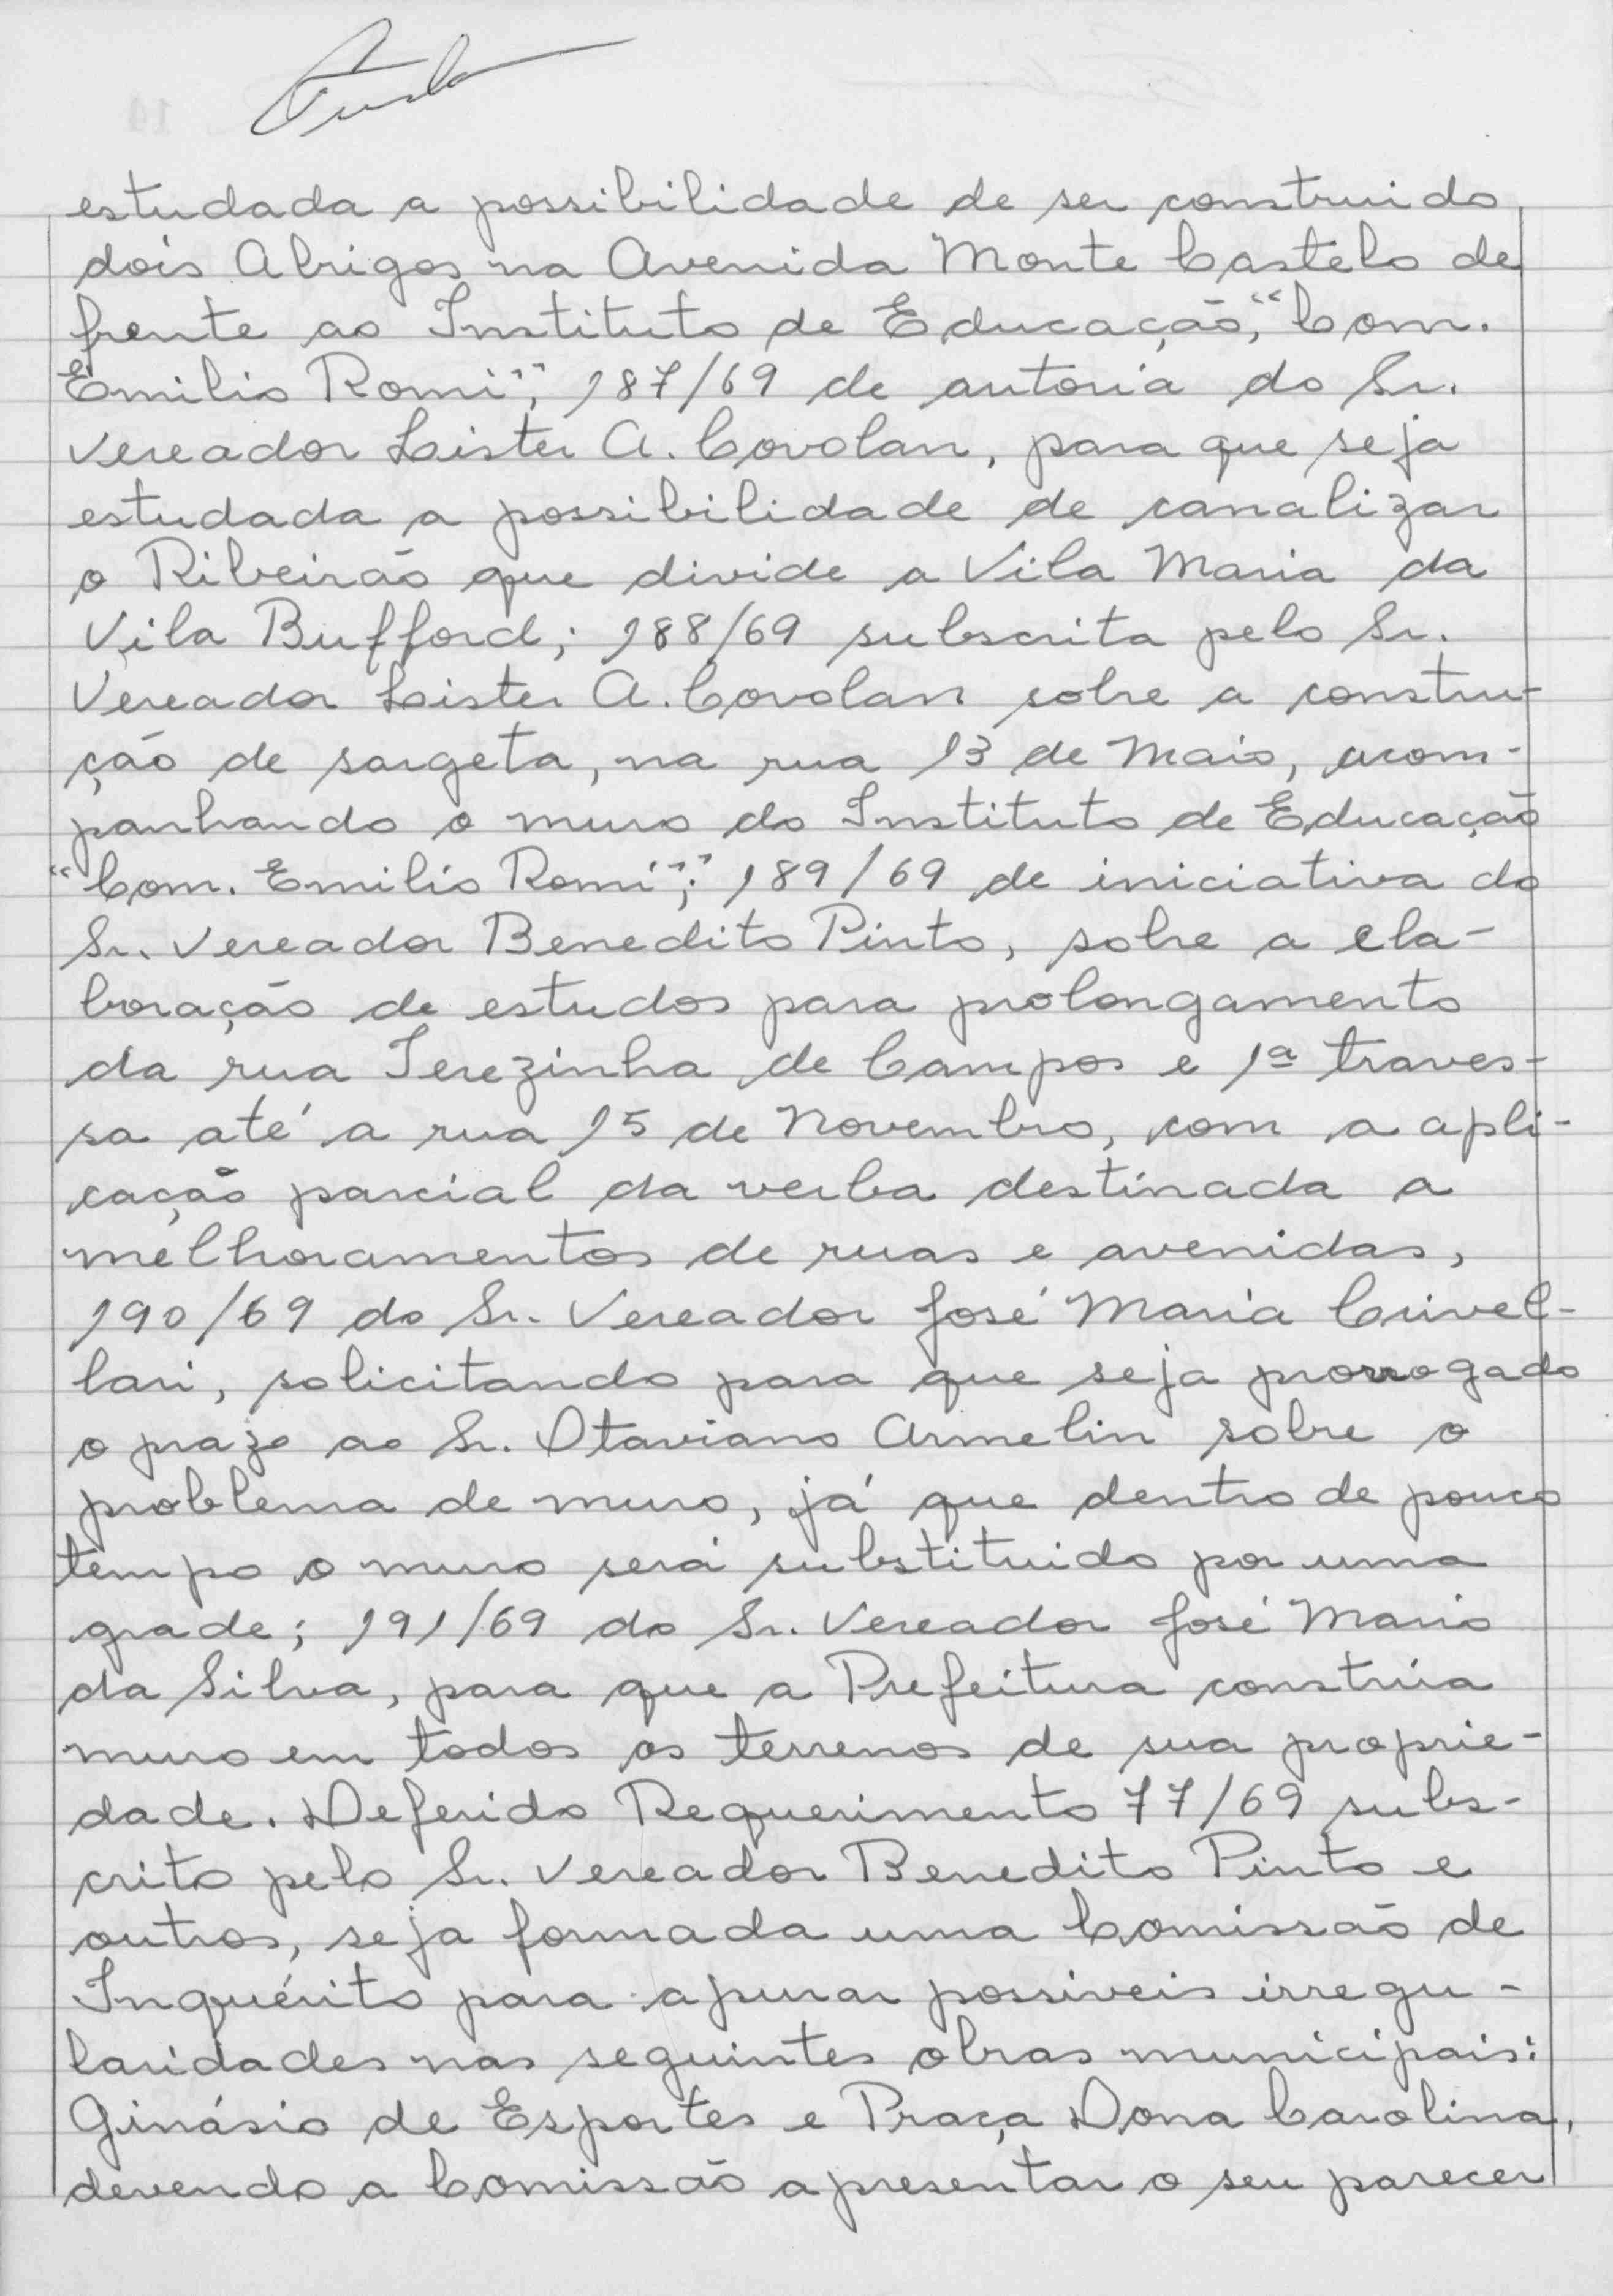 estudada a possibilidade de ser construido
dois Abrigos na Avenida Monte Castelo de
frente ao Instituto de Educação, "Com.
Emilio Romi"; 187/69 de autoria do Sr.
Vereador Lister A. Covolan, para que seja
estudada a possibilidade de canalizar
o Ribeirão que divide a Vila Maria da
Vila Bufford; 188/69 subscrita pelo Sr.
Vereador Lister A. Covolan sobre a constru-
ção de sargeta, na rua 13 de Maio, acom-
panhando o muro do Instituto de Educação
"Com. Emilio Romi"; 189/69 de iniciativa do
Sr. Vereador Benedito Pinto, sobre a ela-
boração de estudos para prolongamento
da rua Terezinha de Campos e 1ª traves-
sa até a rua 15 de Novembro, com a apli-
cação parcial da verba destinada a
melhoramentos de ruas e avenidas,
190/69 do Sr. Vereador José Maria Crivel-
lari, solicitando para que seja prorrogado
o prazo ao Sr. Otaviano Armelin sobre o
problema de muro, já que dentro de pouco
tempo o muro será substituido por uma
grade; 191/69 do Sr. Vereador José Mario
da Silva, para que a Prefeitura constrúa
muro em todos os terrenos de sua proprie-
dade. Deferido Requerimento 77/69 subs-
crito pelo Sr. Vereador Benedito Pinto e
outros, seja formada uma Comissão de
Inquérito para apurar possiveis irregu-
laridades nas seguintes obras municipais:
Ginásio de Esportes e Praça Dona Carolina,
devendo a Comissão apresentar o seu parecer